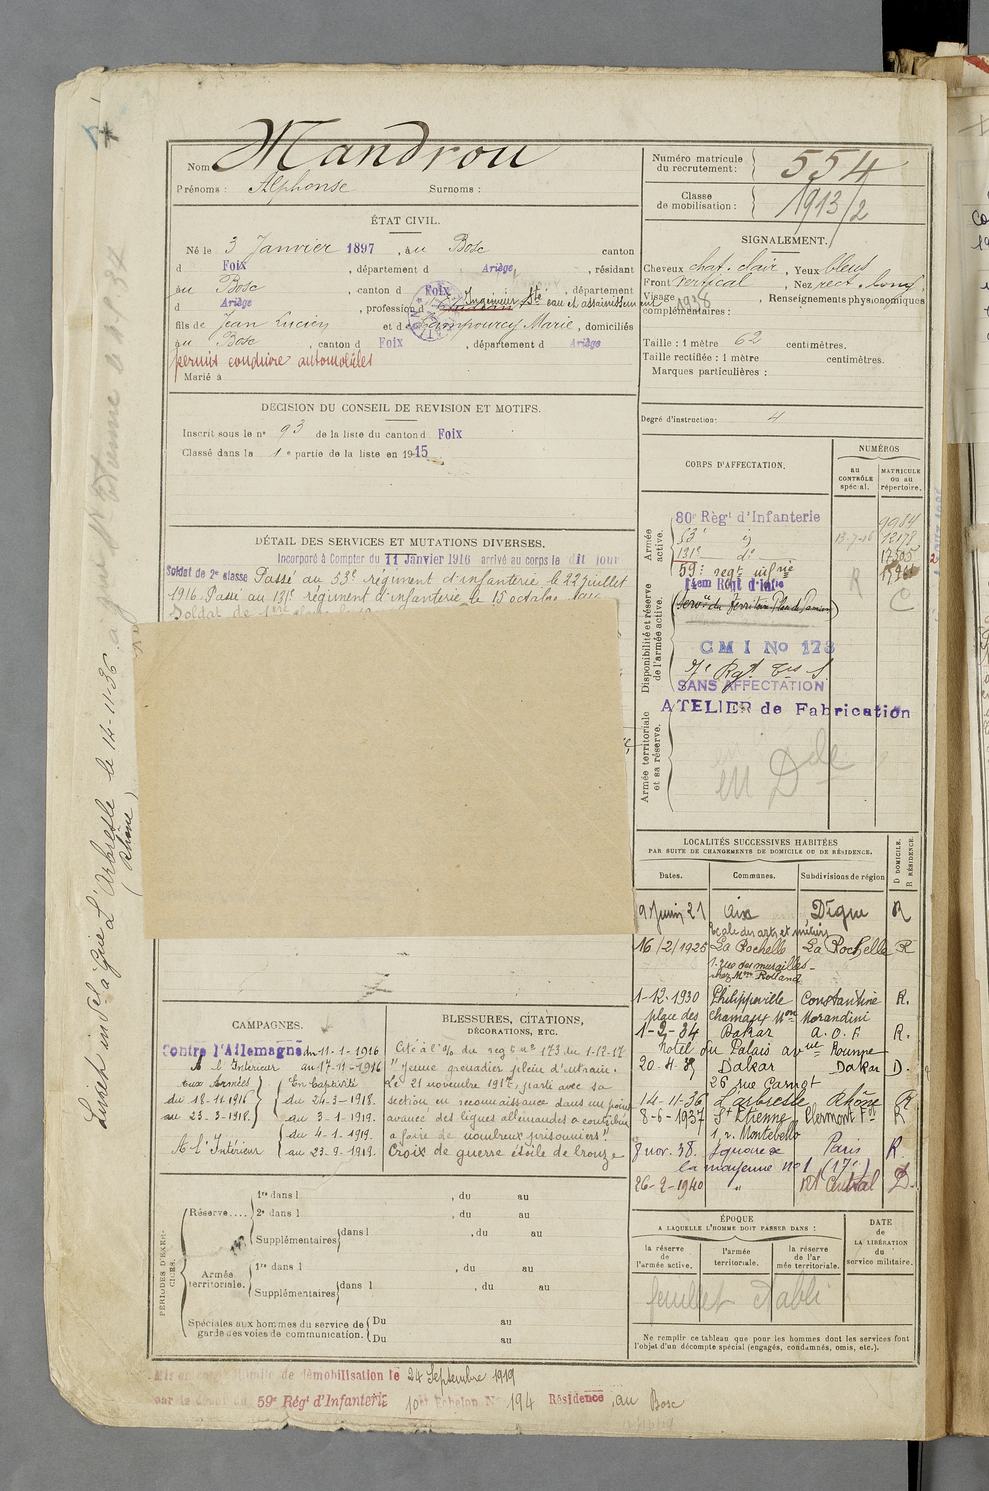 Nom Mandrou
Prénoms : Alphonse Surnoms :
Numéro matricule du recrutement : 554
Classe de mobilisation : 1913/2
ÉTAT CIVIL.
Né le 3 Janvier 1897, à u Bosc canton
d Foix, département d Ariège, résidant
à u Bosc, canton d Foix, département
d Ariège, profession d Ingénieur Sté eau et assainissement 1938
fils de Jean Lucien et de Campourcy Marie, domiciliés
à u Bosc, canton d Foix, département d Ariège
permis conduire automobiles
Marié à
SIGNALEMENT.
Cheveux chat. clair, Yeux bleus
Front vertical, Nez rect. long
Visage, Renseignements physionomiques
complémentaires :
Taille : 1 mètre 62 centimètres.
Taille rectifiée : 1 mètre centimètres.
Marques particulières :
Degré d'instruction : 4
DECISION DU CONSEIL DE REVISION ET MOTIFS.
Inscrit sous le n° 93 de la liste du canton d Foix
Classé dans la 1e partie de la liste en 1915
DÉTAIL DES SERVICES ET MUTATIONS DIVERSES.
Incorporé à Compter du 11 Janvier 1916 arrivé au corps le dit jour
Soldat de 2e classe Passé au 53e régiment d'infanterie le 22 juillet
1916. Passé au 131e régiment d'infanterie le 15 octobre
Soldat de 1ère
CORPS D'AFFECTATION.
NUMÉROS
au CONTRÔLE spécial.
MATRICULE ou au répertoire.
Armée active.
80e Régt d'Infanterie 9984
53e d° 13-7-16 12178
131e d°
59e regt infrie
14em Regt d'Infie
Disponibilité et réserve de l'armée active.
C M I No 173
SANS AFFECTATION
ATELIER de Fabrication
Armée territoriale et sa réserve.
LOCALITÉS SUCCESSIVES HABITÉES
PAR SUITE DE CHANGEMENTS DE DOMICILE OU DE RÉSIDENCE.
Dates. Communes. Subdivisions de région D DOMICILE. R RÉSIDENCE.
9 Juin 21 Aix Digne R
École des arts et métiers
16/2/1925 La Rochelle La Rochelle R
chez Mme Rolland
1-12-1930 Philippeville Constantine R.
place des Chameaux Mon Morandini
1-2-34 Dakar A.O.F. R.
hotel du Palais avnue Roume
20-4-35 Dakar Dakar D.
26 rue Carnot
14-11-36 L'arbresle Rhône R
8-6-1937 St Etienne Clermont Fd R
1, r. Montebello
8 nov. 38. Square de Paris R.
la mayenne n°1 (17e)
26-2-1940 " Rt Central D.
CAMPAGNES.
Contre l'Allemagne du 11-1-1916
A l'Intérieur au 17-11-1916
aux Armées
du 18-11-1916
au 23-3-1918.
En Captivité
du 24-3-1918.
au 3-1-1919.
A l'Intérieur
du 4-1-1919.
au 23-9-1919.
BLESSURES, CITATIONS,
DÉCORATIONS, ETC.
Cité à l'o/. du regt n° 173 du 1-12-17
"Jeune grenadier plein d'entrain.
Le 21 novembre 1917, parti avec sa
section en reconnaissance dans un point
avancé des lignes allemandes a contribué
a faire de nombreux prisonniers".
Croix de guerre étoile de bronze
PÉRIODES D'EXERCICES.
Réserve....
1re dans l , du au
2e dans l , du au
Supplémentaires dans l , du au
Armée territoriale.
1re dans l , du au
Supplémentaires dans l , du au
Spéciales aux hommes du service de garde des voies de communication.
Du au
Du au
ÉPOQUE
A LAQUELLE L'HOMME DOIT PASSER DANS :
la réserve de l'armée active.
l'armée territoriale.
la réserve de l'armée territoriale.
DATE de LA LIBÉRATION du service militaire.
feuillet établi
Ne remplir ce tableau que pour les hommes dont les services font
l'objet d'un décompte spécial (engagés, condamnés, omis, etc.).
Mis en congé illimité de démobilisation le 24 Septembre 1919
par le dépôt du 59e Régt d'Infanterie 10e Echelon N° 194 Résidence, au Bosc
L'Arbresle le 14-11-36
(Rhône)